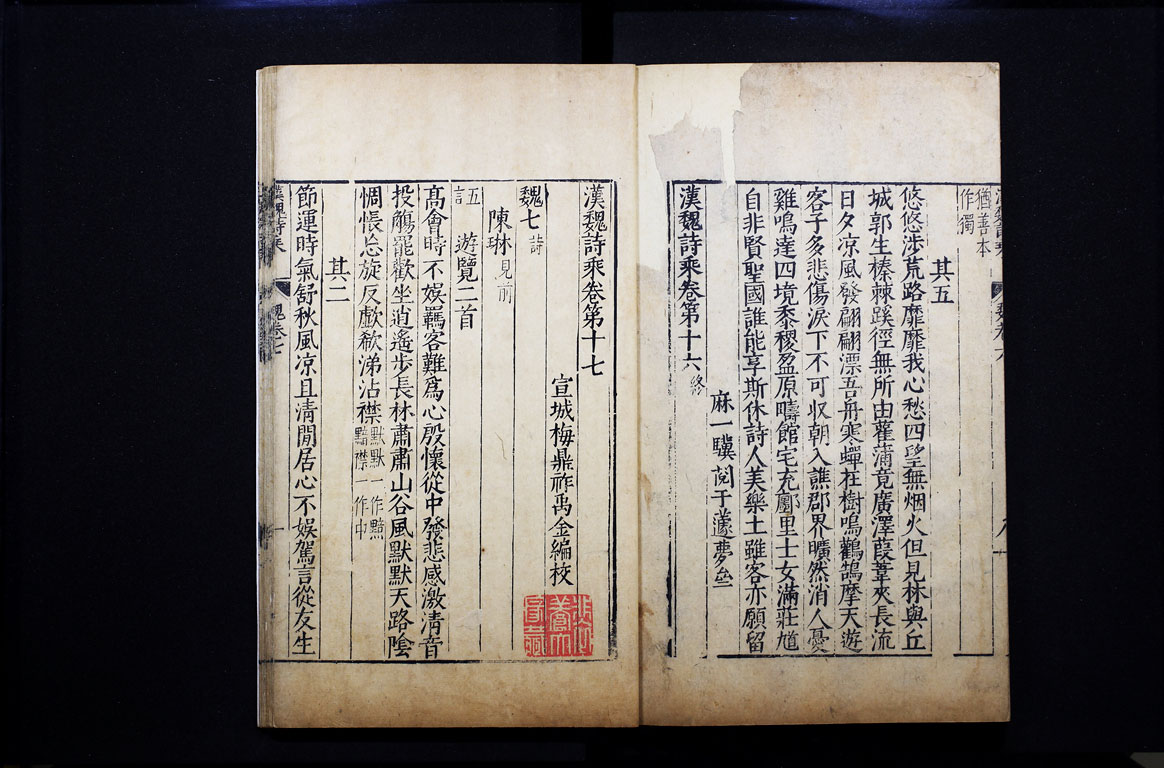 猶善本
作獨
其五
悠悠涉荒路靡靡我心愁四望無烟火但見林與丘
城郭生榛棘蹊徑無所由雚蒲竟廣澤葭葦夾長流
日夕凉風發翩翩漂吾舟寒蟬在樹鳴鸛鵠摩天遊
客子多悲傷淚下不可収朝入譙郡界曠然消人憂
雞鳴達四境黍稷盈原疇館宅充鄽里士女滿莊馗
自非賢聖國誰能享斯休詩人美樂土雖客亦願留
麻一驥閲于蘧夢
漢魏詩乘卷第十六終
漢魏詩乘卷第十七
宣城梅鼎祚禹金編校
魏七詩
陳琳見前
五言
遊覽二首
髙會時不娱羈客難爲心殷懷從中發悲感激清音
投觴罷歡坐逍遙步長林肅肅山谷風默默天路陰
惆悵忘旋反歔欷涕沾襟默默一作黯
黯襟一作中
其二
節運時氣舒秋風凉且清閒居心不娱駕言從友生
漢魏詩乘
魏卷七